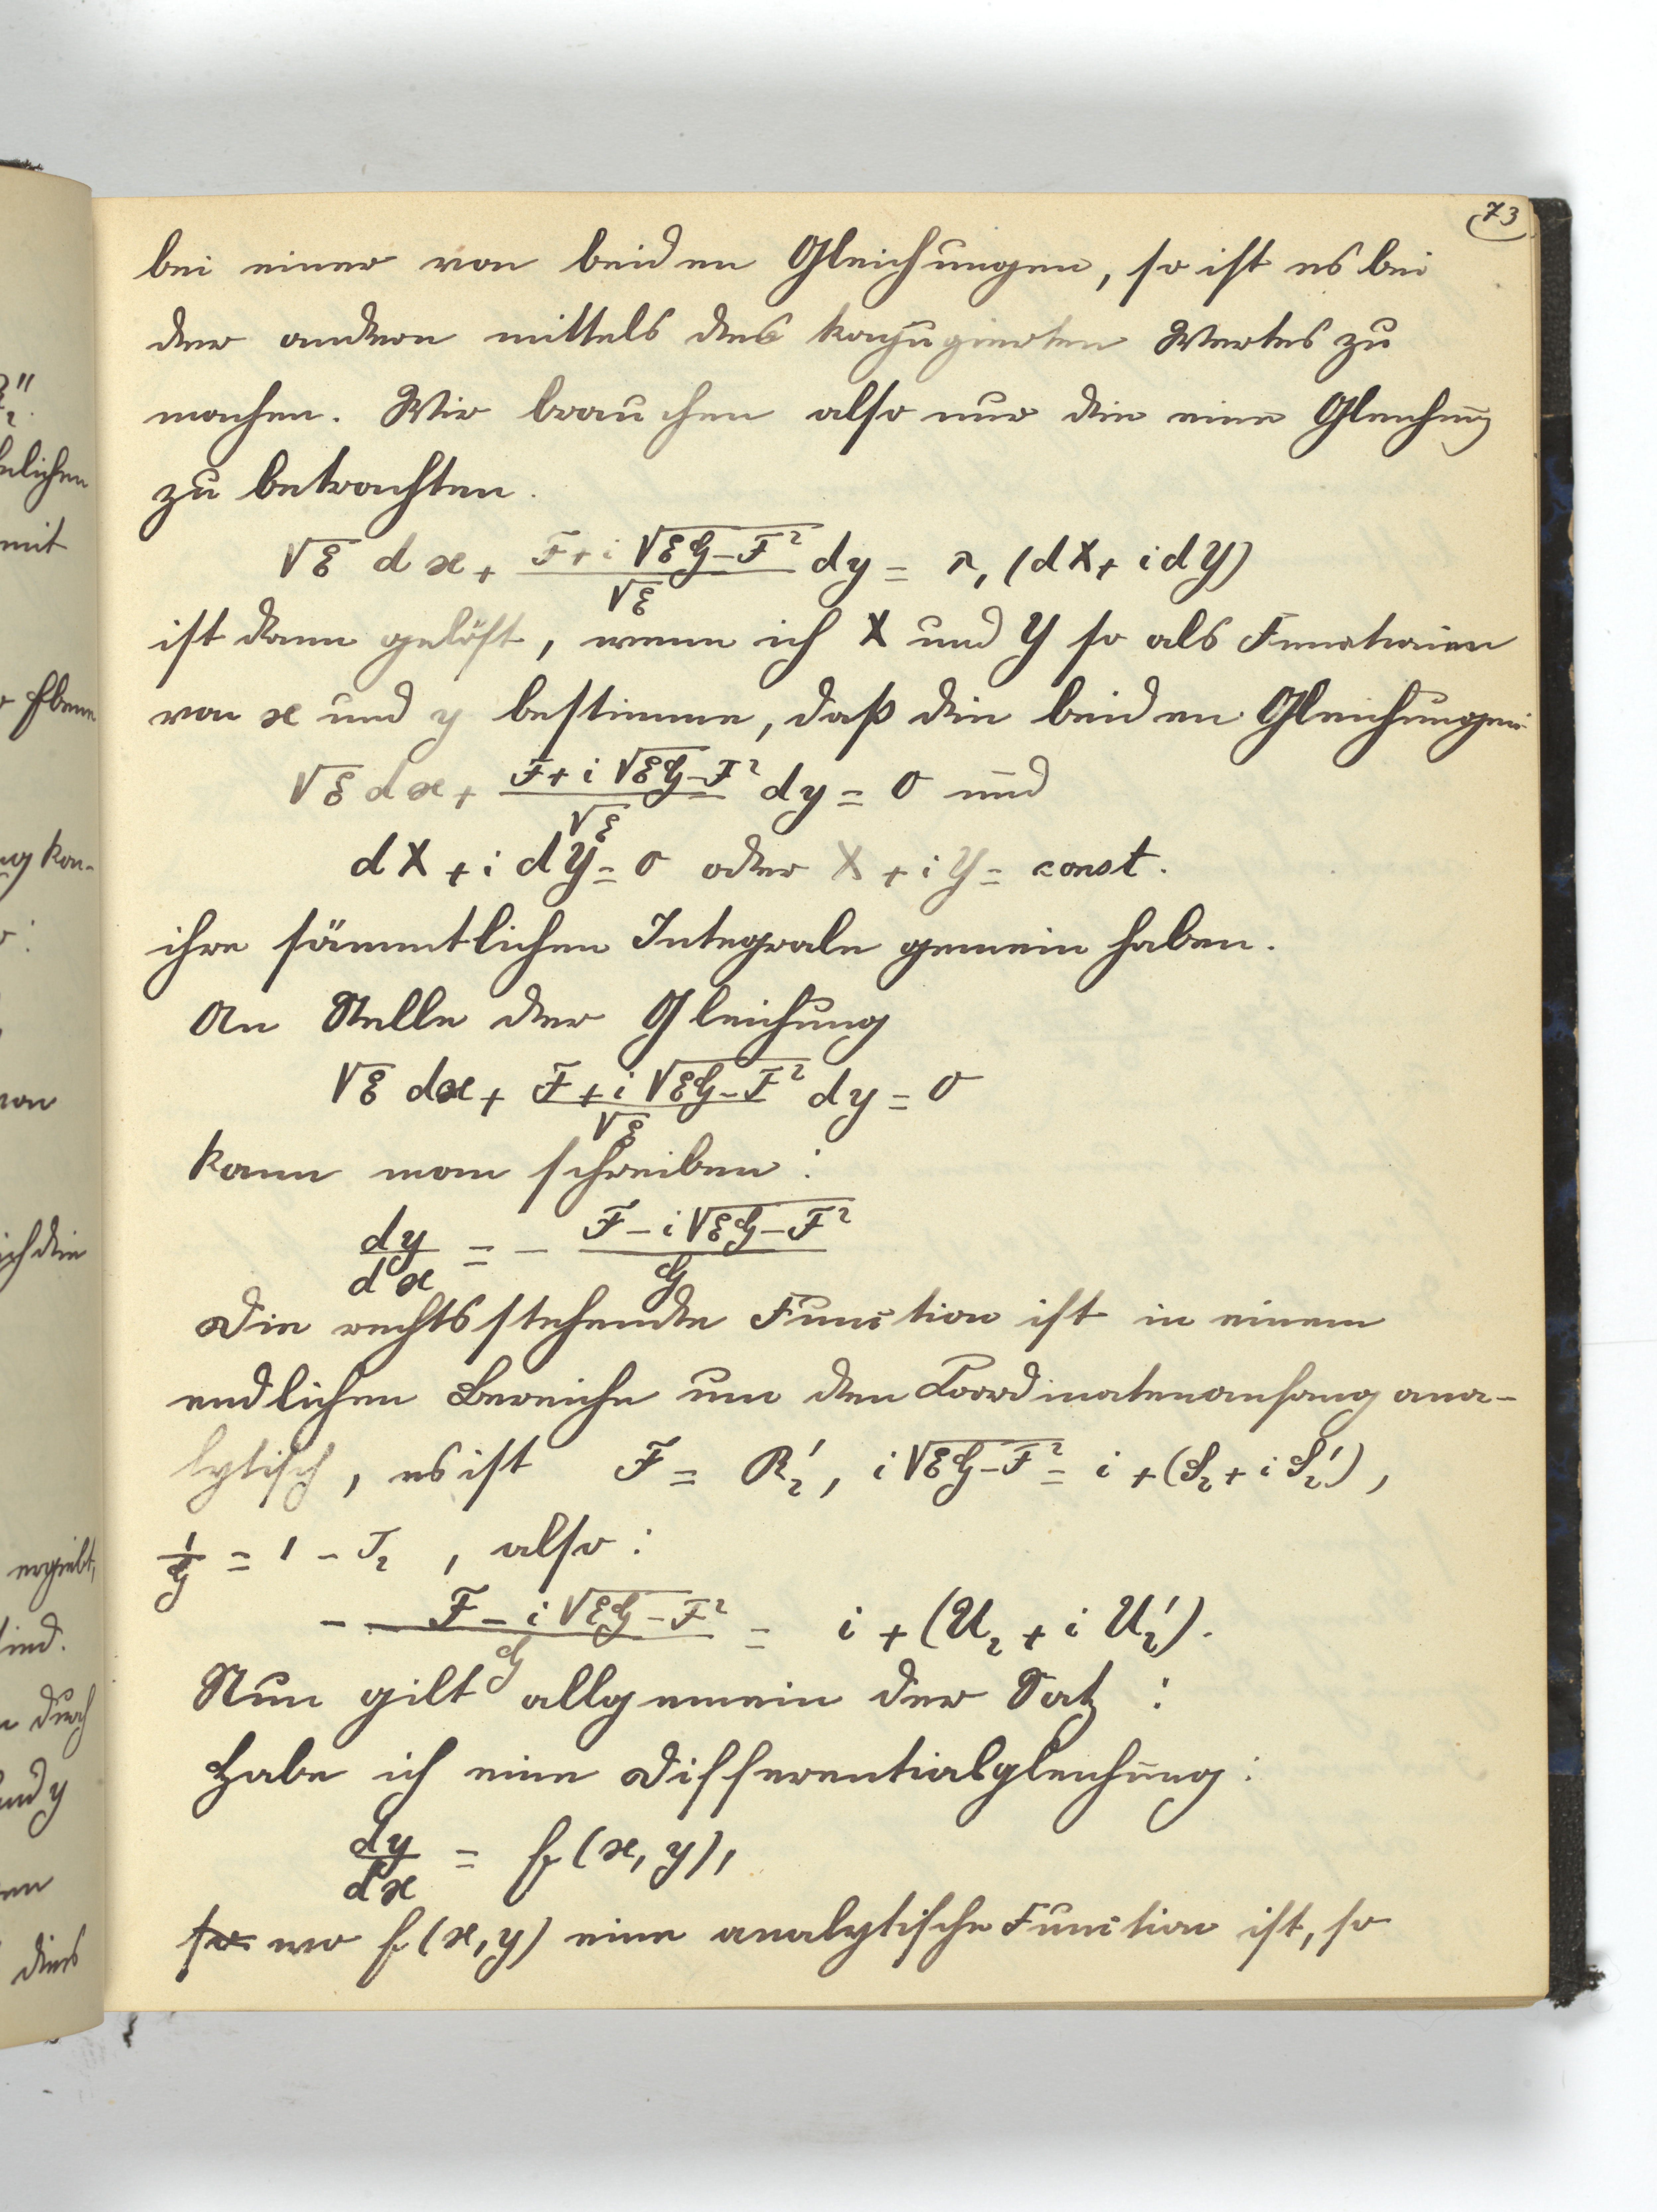 73
bei einer von beiden Gleichungen, so ist es bei
der andern mittels des konjugierten Wertes zu
machen. Wir brauchen also nur die eine Gleichung
zu betrachten.
√ℰ dx + (ℱ + i √(ℰ𝒢 − ℱ²))/√ℰ dy = r₁ (dX + i dY)
ist dann gelöst, wenn ich X und Y so als Functionen
von x und y bestimme, daß die beiden Gleichungen:
√ℰ dx + (ℱ + i √(ℰ𝒢 − ℱ²))/√ℰ dy = 0 und
dX + i dY = 0 oder X + iY = const.
ihre sämmtlichen Integrale gemein haben.
An Stelle der Gleichung
√ℰ dx + (ℱ + i √(ℰ𝒢 − ℱ²))/√ℰ dy = 0
kann man schreiben:
dy/dx = − (ℱ − i √(ℰ𝒢 − ℱ²))/𝒢
Die rechtsstehende Function ist in einem
endlichen Bereiche um den Coordinatenanfang ana-
lytisch, es ist ℱ = R₂′, i √(ℰ𝒢 − ℱ²) = i + (S₂ + i S₂′),
1/𝒢 = 1 − T₂, also:
− (ℱ − i √(ℰ𝒢 − ℱ²))/𝒢 = i + (U₂ + i U₂′).
Nun gilt allgemein der Satz:
Habe ich eine Differentialgleichung:
dy/dx = f(x, y),
so wo f(x, y) eine analytische Function ist, so
2.
mit
Ebene
kon-
von
ergiebt,
sind.
durch
und y
dies